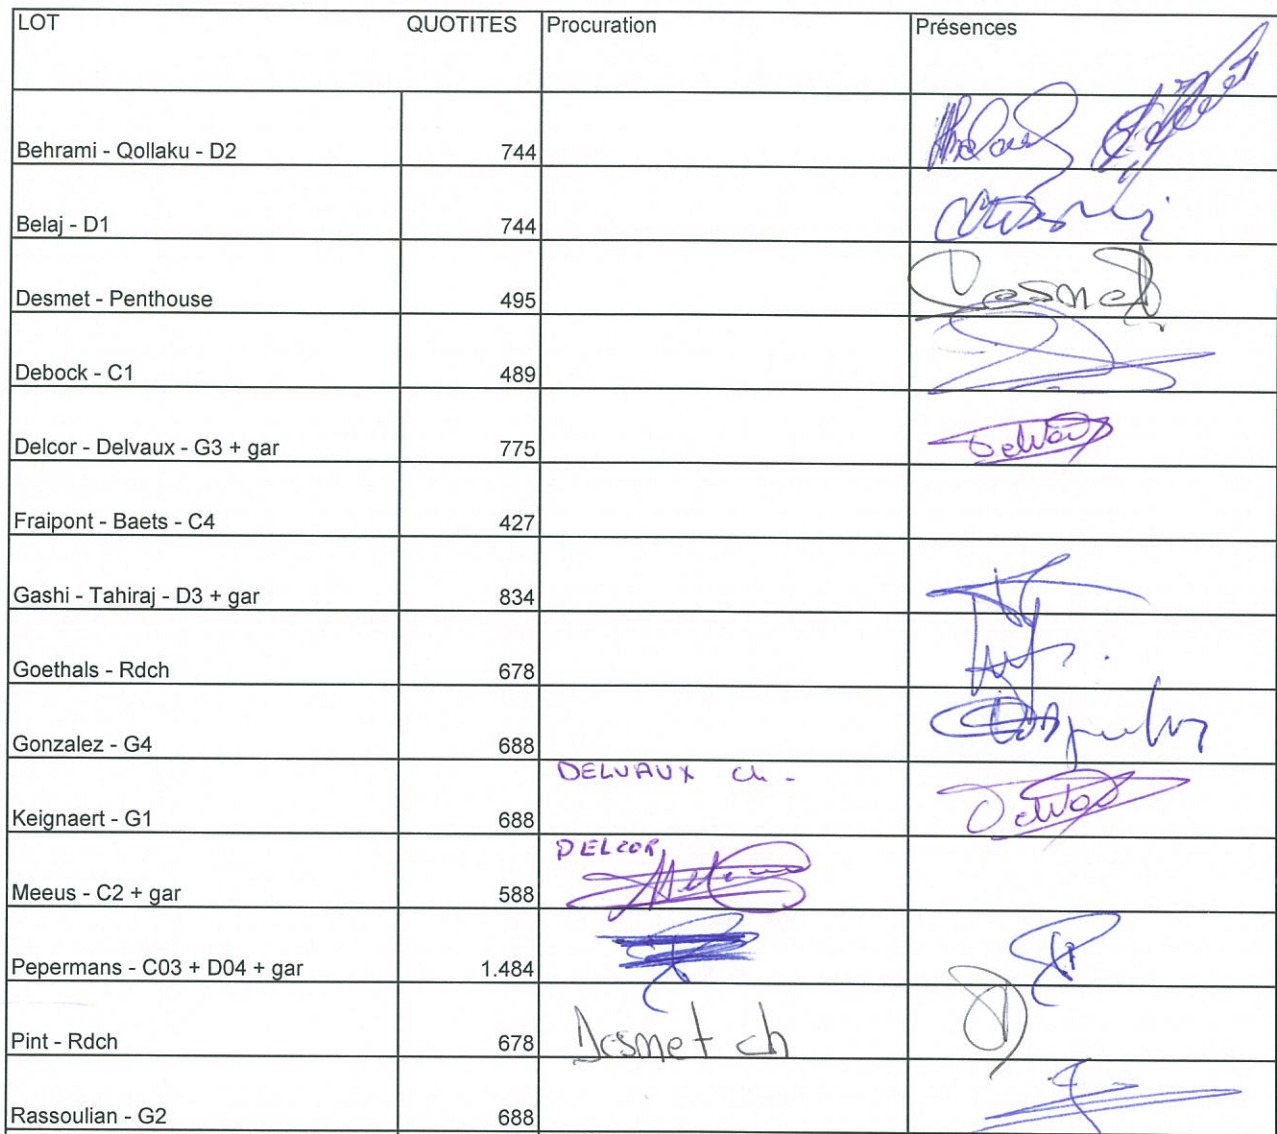 LOT QUOTITES Procuration Présences
Behrami - Qollaku - D2 744
Belaj - D1 744
Desmet - Penthouse 495 Desmet
Debock - C1 489
Delcor - Delvaux - G3 + gar 775 Delvaux
Fraipont - Baets - C4 427
Gashi - Tahiraj - D3 + gar 834
Goethals - Rdch 678
Gonzalez - G4 688
DELVAUX Ch -
Keignaert - G1 688 Delvaux
DELCOR
Meeus - C2 + gar 588
Pepermans - C03 + D04 + gar 1.484
Pint - Rdch 678 Desmet ch
Rassoulian - G2 688